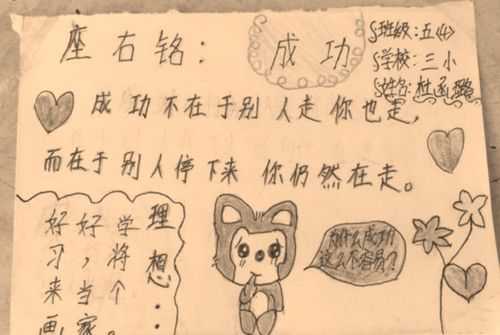 座右铭：
成功
班级：五〈4〉
学校：三小
姓名：杜函璐
成功不在于别人走你也走，
而在于别人停下来 你仍然在走。
理想…
好好学
习，将
来当个
画家。
为什么成功
这么不容易？